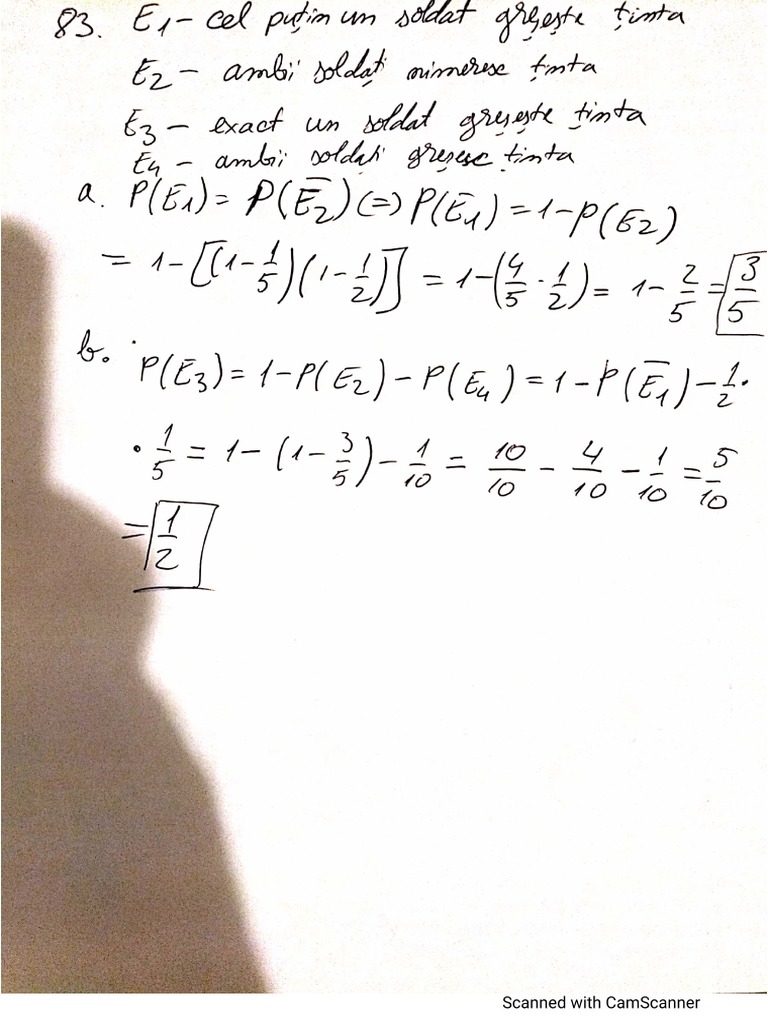 83. E1 - cel puțin un soldat greșește ținta
E2 - ambii soldați nimeresc ținta
E3 - exact un soldat greșește ținta
E4 - ambii soldați greșesc ținta
a. P(E1) = P(E̅2) (=) P(E̅1) = 1-P(E2)
= 1-[(1-1/5)(1-1/2)] = 1-(4/5 · 1/2) = 1- 2/5 = 3/5
b. P(E3) = 1-P(E2) - P(E4) = 1-P(E̅1) - 1/2 ·
· 1/5 = 1-(1-3/5) - 1/10 = 10/10 - 4/10 - 1/10 = 5/10
= 1/2
Scanned with CamScanner